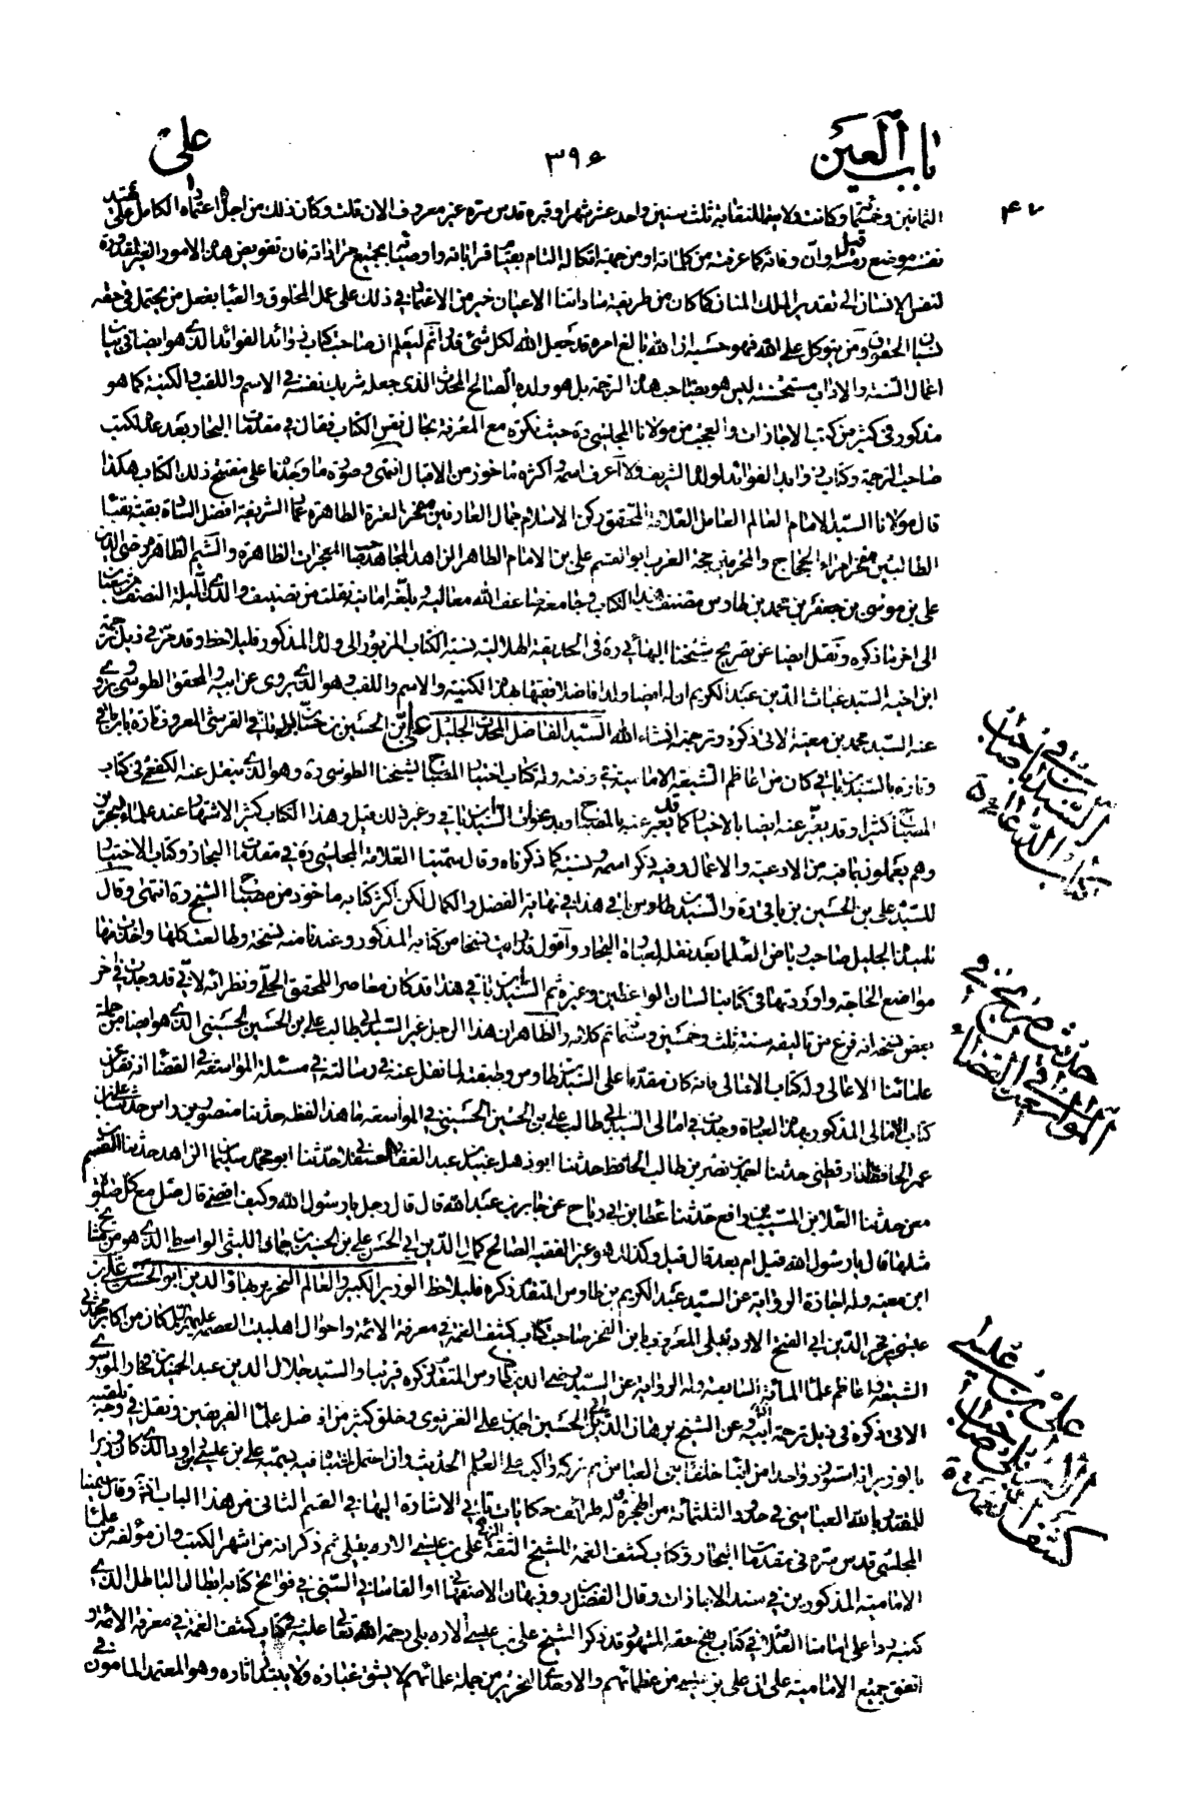 باب العين
٣٩٦
على
٤٧
الثمانين وخمسمائة وكانت ولايته للنقابة ثلث سنين واحد عشر شهرا وقبره قدس سره غير معروف الان قلت وكان ذلك من اجل اعتماد الكامل على
نفسه موضع وان وفاته كما عرفته من كلماته او من جهة اتكاله التام بقيتا قراباته واوصيائه بجميع مراداته فان تفويض هذه الامور الغير
لنقص الانسان الى تقدير الملك المنان كما كان من طريقة ساداتنا الاعيان خير من الاعتماد في ذلك على عمل المخلوق والعيا بفعل من يحتمل في حقه
نسيان الحقوق ومن يتوكل على الله فهو حسبه ان الله بالغ امره قد جعل الله لكل شئ قدرا ثم ليعلم ان صاحب كتاب زوائد الفوائد الذي هو ايضا في بيان
اعمال السنة والاداب مستحسنة ليس هو بصاحب هذه الترجمة بل هو ولده الصالح المحدث الذي جعله شريك نفسه في الاسم واللقب والكنية كما هو
مذكور في كثير من كتب الاجازات والعجب من مولانا المجلسي ره حيث نكره مع المعرفة بحال نفس الكتاب فقال في مقدمات البحار بعد عد كتب
صاحب الترجمة وكتاب زوايد الفوائد لولده الشريف ولا اعرف اسمه واكثره ماخوذ من الاقبال انتهى وصورة ما وجدنا على مفتتح ذلك الكتاب هكذا
قال مولانا السيد الامام العالم العامل العلامة المحقق ركن الاسلام جمال العارفين مفخر العترة الطاهرة عماد الشريعة افضل السادة بقية نقباء
الطالبيين مفخر امراء الحجاج والحرمين حجة العرب ابو القسم على بن الامام الطاهر الزاهد المجاهد صاحب المعجزات الظاهرة والشيم الطاهرة رضى الدين
على بن موسى بن جعفر بن محمد بن طاوس مصنف هذا الكتاب وجامعه ضاعف الله معاليه وبلغه امانيه نقلت من تصنيف والدى ليلة النصف من شعبان
الى اخر ما ذكره ونقل ايضا عن تصريح شيخنا البهائي ره في الحديقة الهلالية بنسبة الكتاب المزبور الى ولده المذكور فليلاحظ وقد مر في ذيل ترجمة
ابن اخيه السيد غياث الدين عبد الكريم ان له ايضا ولدا فاضلا فقيها بهذه الكنية والاسم واللقب وهو الذي يروى عن ابيه والمحقق الطوسى ويروى
عنه السيد محمد بن معية الاتى ذكره وترجمته انشاء الله السيد الفاضل المحدث الجليل على بن الحسين بن حسان القرشى المعروف تارة بابن باقي
وتارة بالسيد بن باقي كان من اعاظم الشيعة الامامية في وقته وله كتاب اختيار المصباح لشيخنا الطوسى ره وهو الذي ينقل عنه الكفعمى في كتاب
المصباح كثيرا وقد يعبر عنه ايضا بالاختيار كما قد يعبر عنه بالمصباح او بعنوان السيد ابن باقي وغير ذلك قيل وهذا الكتاب كثير الاشتهار عند علماء البحرين
وهم يعملون بما فيه من الادعية والاعمال وفيه ذكر اسمه ونسبه كما ذكرناه وقال سمينا العلامة المجلسي ره في مقدمات البحار وكتاب الاختيار
للسيد على بن الحسين بن باقي ره والسيد طاوس في هذا في نهاية الفضل والكمال لكن اكثر كتابه ماخوذ من مصباح الشيخ ره انتهى وقال
تلميذه الجليل صاحب رياض العلماء بعد نقله لعبارة البحار واقول قد رايت نسخا من كتابه المذكور وعندنا منه نسخة وطالعت كلها واخذت منها
مواضع الحاجة واوردتها في كتابنا لسان الواعظين وغيره ثم السيد بن باقي هذا قد كان معاصرا للمحقق الحلي ونظرائه لانى قد وجدت في اخر
بعض نسخه انه فرغ من تاليفه سنة ثلث وخمسين وستمائة تم كلامه والظاهر ان هذا الرجل غير السيد ابي طالب على بن الحسين الحسينى الذي هو ايضا من جملة
علمائنا الاعالى وله كتاب الامالى بانه كان مقدما على السيد بن طاوس وطبقته لما نقل عنه في رسالته في مسئلة المواسعة في القضا انه نقل عن
كتاب الامالى المذكور بهذه العبارة وجدت في امالى السيد ابي طالب على بن الحسين الحسينى في المواسعة ما هذا لفظه حدثنا منصور بن رامس حدثنا على بن
عمر الحافظ الدارقطني حدثنا احمد بن نصر بن طالب الحافظ حدثنا ابو ذهل عبيد بن عبد الغفار العسقلانى حدثنا ابو محمد سليمان الزاهد حدثنا القسم
معن حدثنا العلا بن المسيب بن رافع حدثنا عطا بن ابي رباح عن جابر بن عبد الله قال قال رجل يا رسول الله وكيف اقضى قال صل مع كل صلوة
مثلها قال يا رسول الله قبل ام بعد قال قبل وكذلك هو غير الفقيه الصالح كمال الدين ابي الحسن على بن الحسين بن حماد الليثى الواسطى الذي هو من مشايخ
ابن معية وله اجازة الرواية عن السيد عبد الكريم بن طاوس المتقدم ذكره فليلاحظ الوزير الكبير والعالم النحرير بهاء الدين ابو الحسن على بن
عيسى بن فخر الدين ابي الفتح الاردبيلى المعروف بابن الفخر صاحب كتاب كشف الغمة في معرفة الائمة واحوال اهل بيت العصمة عليهم السلام كان من اكابر محدثى
الشيعة واعاظم علماء المائة السابعة وله الرواية عن السيد رضى الدين بن طاوس المتقدم ذكره قريبا والسيد جلال الدين عبد الحميد بن فخار الموسوى
الاتى ذكره في ذيل ترجمة ابيه وعن الشيخ برهان الدين ابي الحسين احمد بن على الغزنوى وخلق كثير من افاضل علماء الفريقين ونقل في وجه تلقيبه
بالوزير انه استوزر واحدا من ابناء خلفا بنى العباس ثم تركه واكب على العلم والحديث وان احتمل اشتباه فيه بسميه على بن عيسى بن داود الذي كان وزيرا
للمقتدر بالله العباسى في حدود الثلثمائة من الهجرة وله طرائف حكايات ياتي في الاشارة اليها في القسم الثانى من هذا الباب انشاء وقال سمينا
المجلسى قدس سره في مقدمات البحار وكتاب كشف الغمة للشيخ الثقة الزكى على بن عيسى الاردبيلى ثم ذكر انه من اشهر الكتب وان مؤلفه من علماء
الامامية المذكورين في سند الاجازات وقال الفضل بن روزبهان الاصفهاني او القاشاني السني في فواتح كتاب ابطال الباطل الذي
كتبه ردا على امامنا العلامة في كتاب نهج حقه المشهور قد ذكر الشيخ على بن عيسى الاردبيلى رحمه الله تعالى عليه في كتاب كشف الغمة في معرفة الائمة و
اتفق جميع الامامية على ان على بن عيسى من عظمائهم والاوحدي النحرير من جملة علمائهم لا يشق غباره ولا يبتدر اثاره وهو المعتمد المامون في
السيد ابن باقي صاحب
حديث صريح في
المواسعة في القضاء
على بن عيسى
الاربلى صاحب
كشف الغمة ره